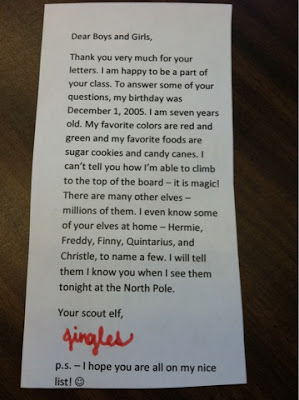 Dear Boys and Girls,
Thank you very much for your
letters. I am happy to be a part of
your class. To answer some of your
questions, my birthday was
December 1, 2005. I am seven years
old. My favorite colors are red and
green and my favorite foods are
sugar cookies and candy canes. I
can't tell you how I'm able to climb
to the top of the board – it is magic!
There are many other elves –
millions of them. I even know some
of your elves at home – Hermie,
Freddy, Finny, Quintarius, and
Christle, to name a few. I will tell
them I know you when I see them
tonight at the North Pole.
Your scout elf,
Jingles
p.s. – I hope you are all on my nice
list! ☺